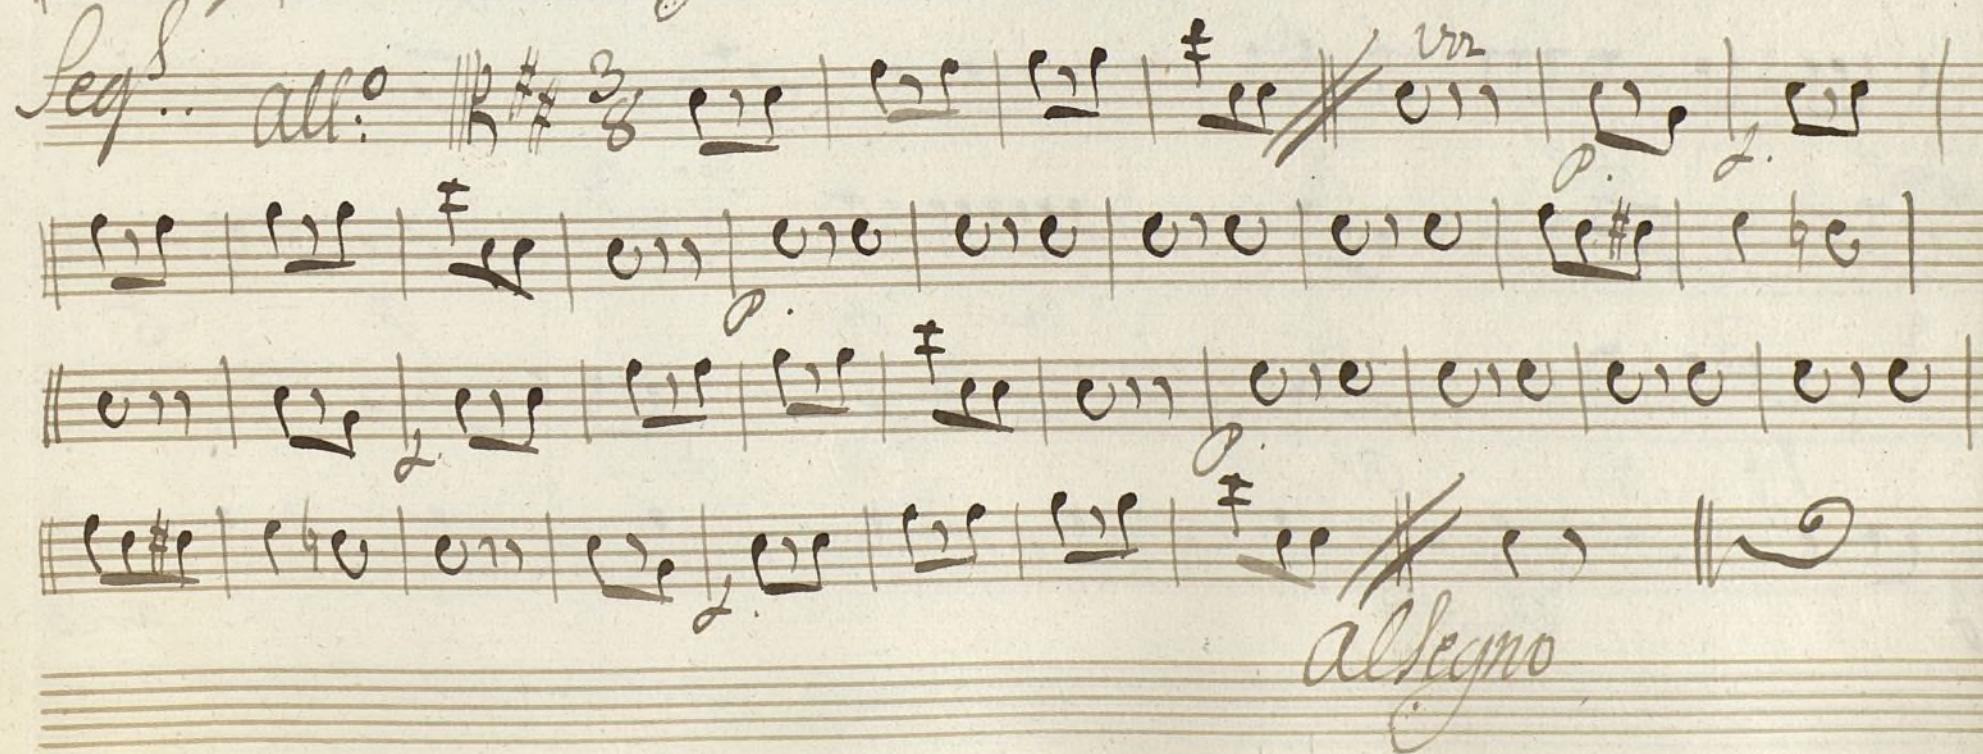 Seq.s All.o 3/8
P. f.
P.
f. P.
f.
al Segno